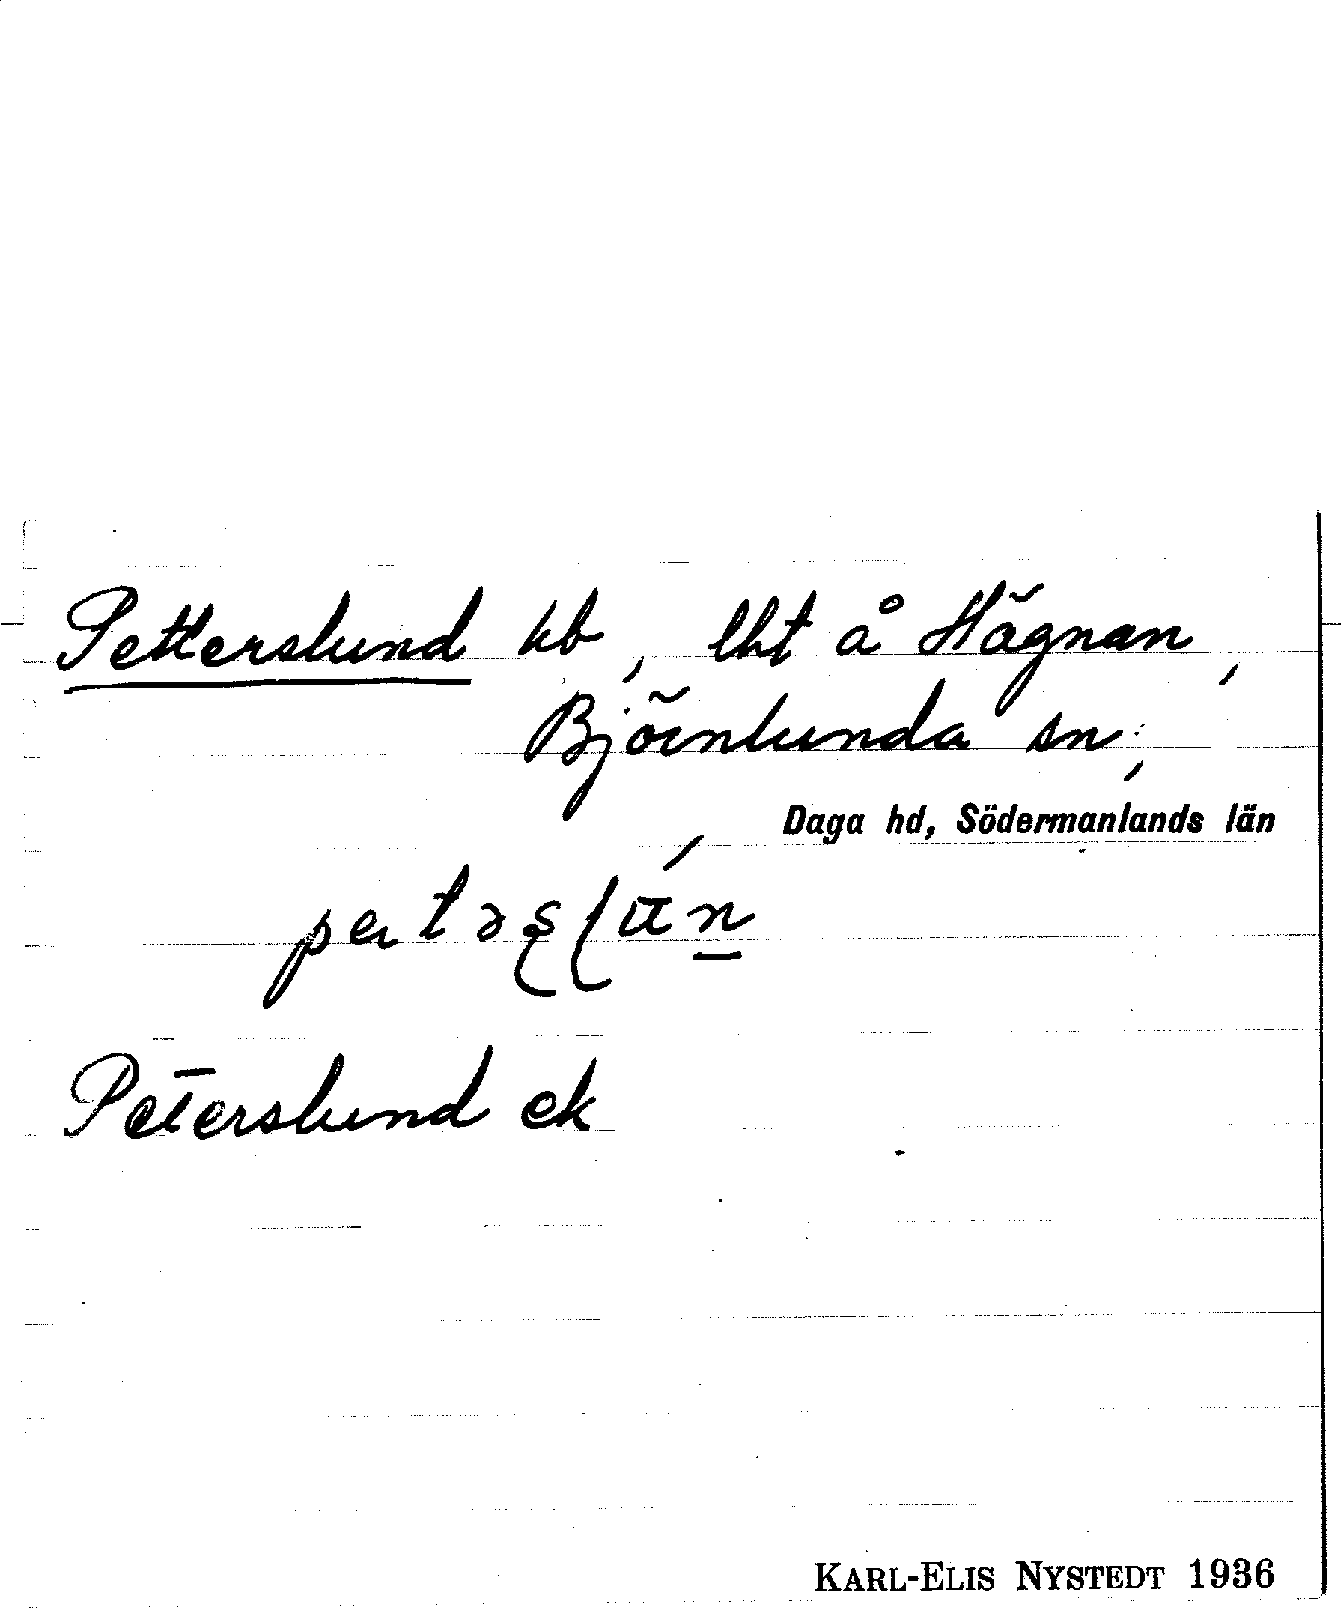 Petterslund hb, lht å Hägnan,
Björnlunda sn,
Daga hd, Södermanlands län
Peterslund ek
KARL-ELIS NYSTEDT 1936